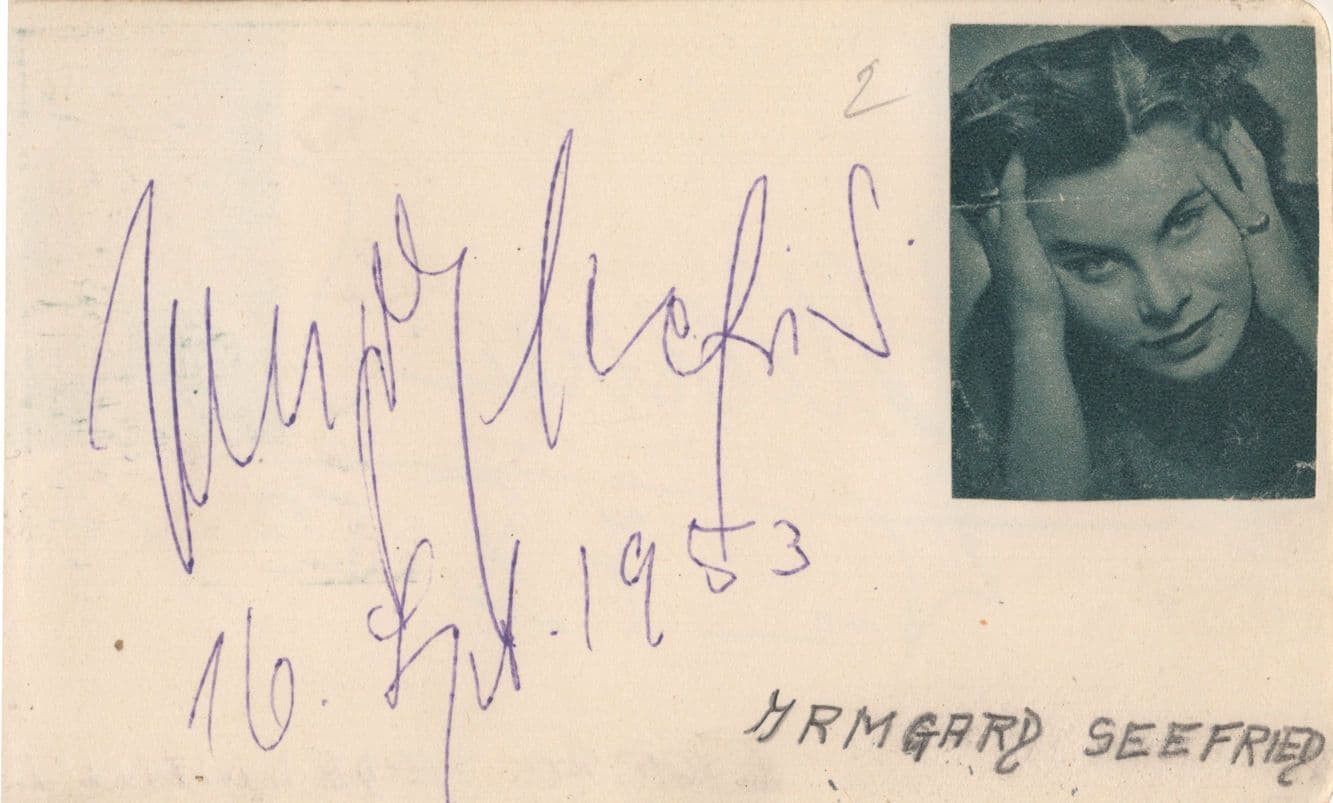 2
Irmgard Seefried.
16. Sept. 1953
IRMGARD SEEFRIED